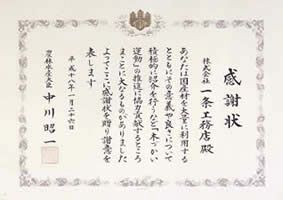 感謝状
株式会社
一条工務店殿
あなたは国産材を大量に利用する
とともにその意義や良さについて
積極的に紹介を行うなど「木づかい
運動」の推進に協力貢献するところ
まことに大なるものがありました
よってここに感謝状を贈り謝意を
表します
平成十八年一月二十六日
農林水産大臣
中川昭一